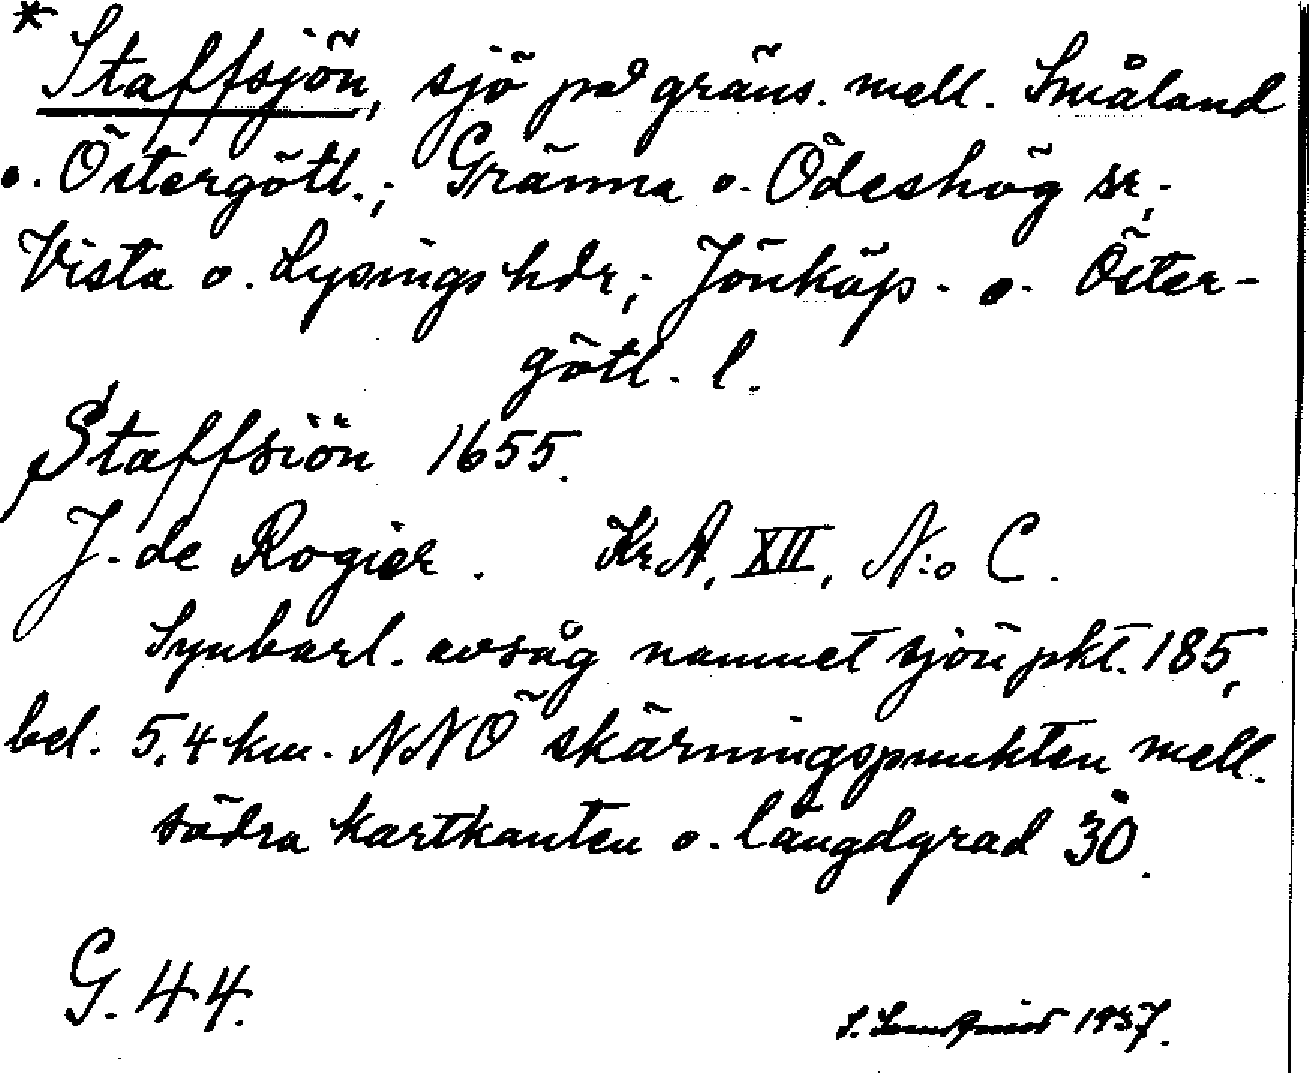 * Staffsjön, sjö på gräns. mell. Småland
o. Östergötl.; Gränna o. Ödeshög sr,;
Vista o. Lysings hdr,; Jönköp. o. Öster-
götl. l.
Staffsiön 1655.
J. de Rogier. KrA, XII, N:o C.
Synbarl. avsåg namnet sjön pkt. 185,
bel. 5,4 km. NNÖ skärningspunkten mell.
södra kartkanten o. längdgrad 30.
G. 44.
S. 1937.